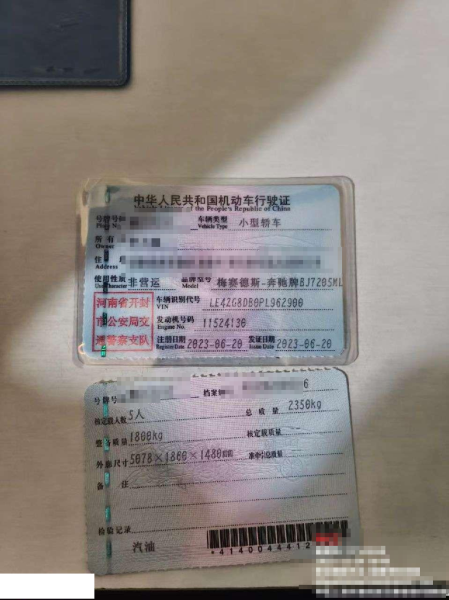 中华人民共和国机动车行驶证
of the People's Republic of China
号牌号码
车辆类型 小型轿车
Vehicle Type
所有
Owner
住
使用性质 非营运 品牌型号 梅赛德斯-奔驰牌BJ7205ML
Use Character Model
河南省开封
市公安局交
通警察支队
车辆识别代号 LE42G8DB0PL962900
VIN
发动机号码 11524136
Engine No.
注册日期 2023-06-20 发证日期 2023-06-20
Register Date Issue Date
号牌号 档案编 6
核定载人数 5人 总质量 2350kg
整备质量 1800kg 核定载质量
外廓尺寸 5078×1860×1480 准牵引总质量
备注
检验记录
汽油
*4140044412